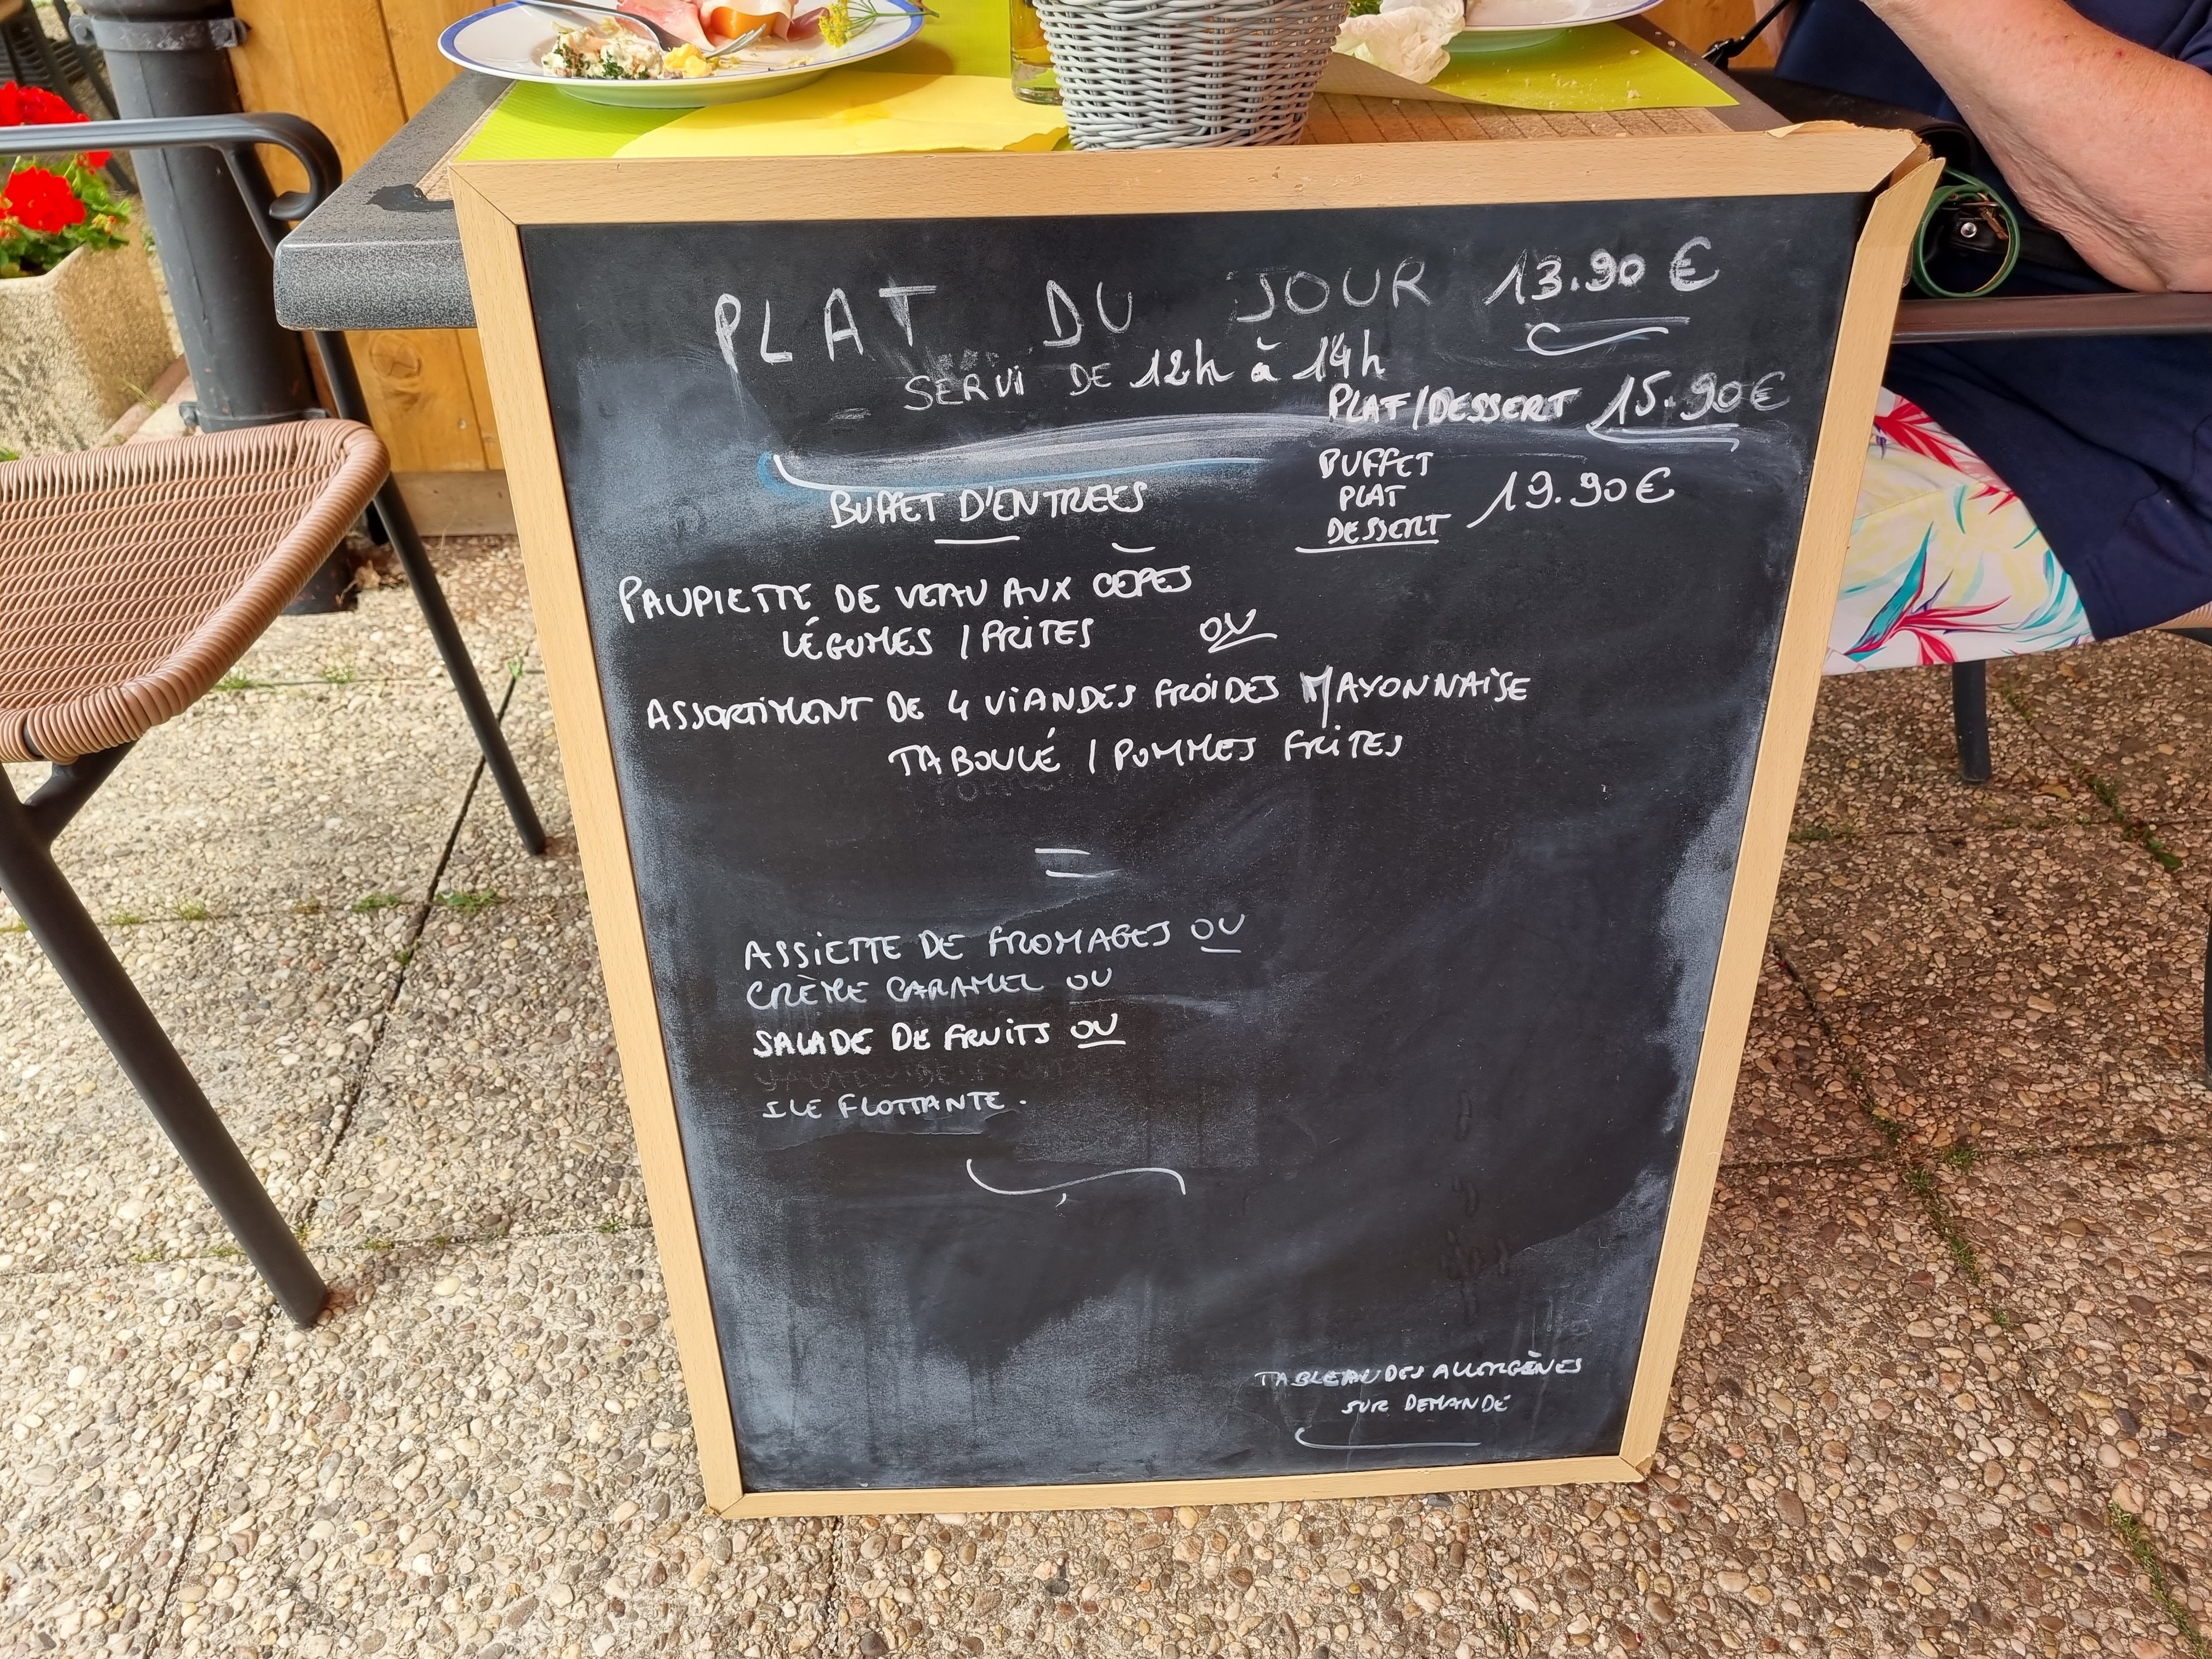 PLAT DU JOUR 13.90 €
SERVI DE 12h à 14h
PLAT/DESSERT 15.90 €
BUFFET D'ENTREES
BUFFET
PLAT
DESSERT 19.90 €
PAUPIETTE DE VEAU AUX CEPES
LÉGUMES / FRITES OU
ASSORTIMENT DE 4 VIANDES FROIDES MAYONNAISE
TABOULÉ / POMMES FRITES
ASSIETTE DE FROMAGES OU
CRÈME CARAMEL OU
SALADE DE FRUITS OU
ILE FLOTTANTE.
TABLEAU DES ALLERGÈNES
SUR DEMANDE